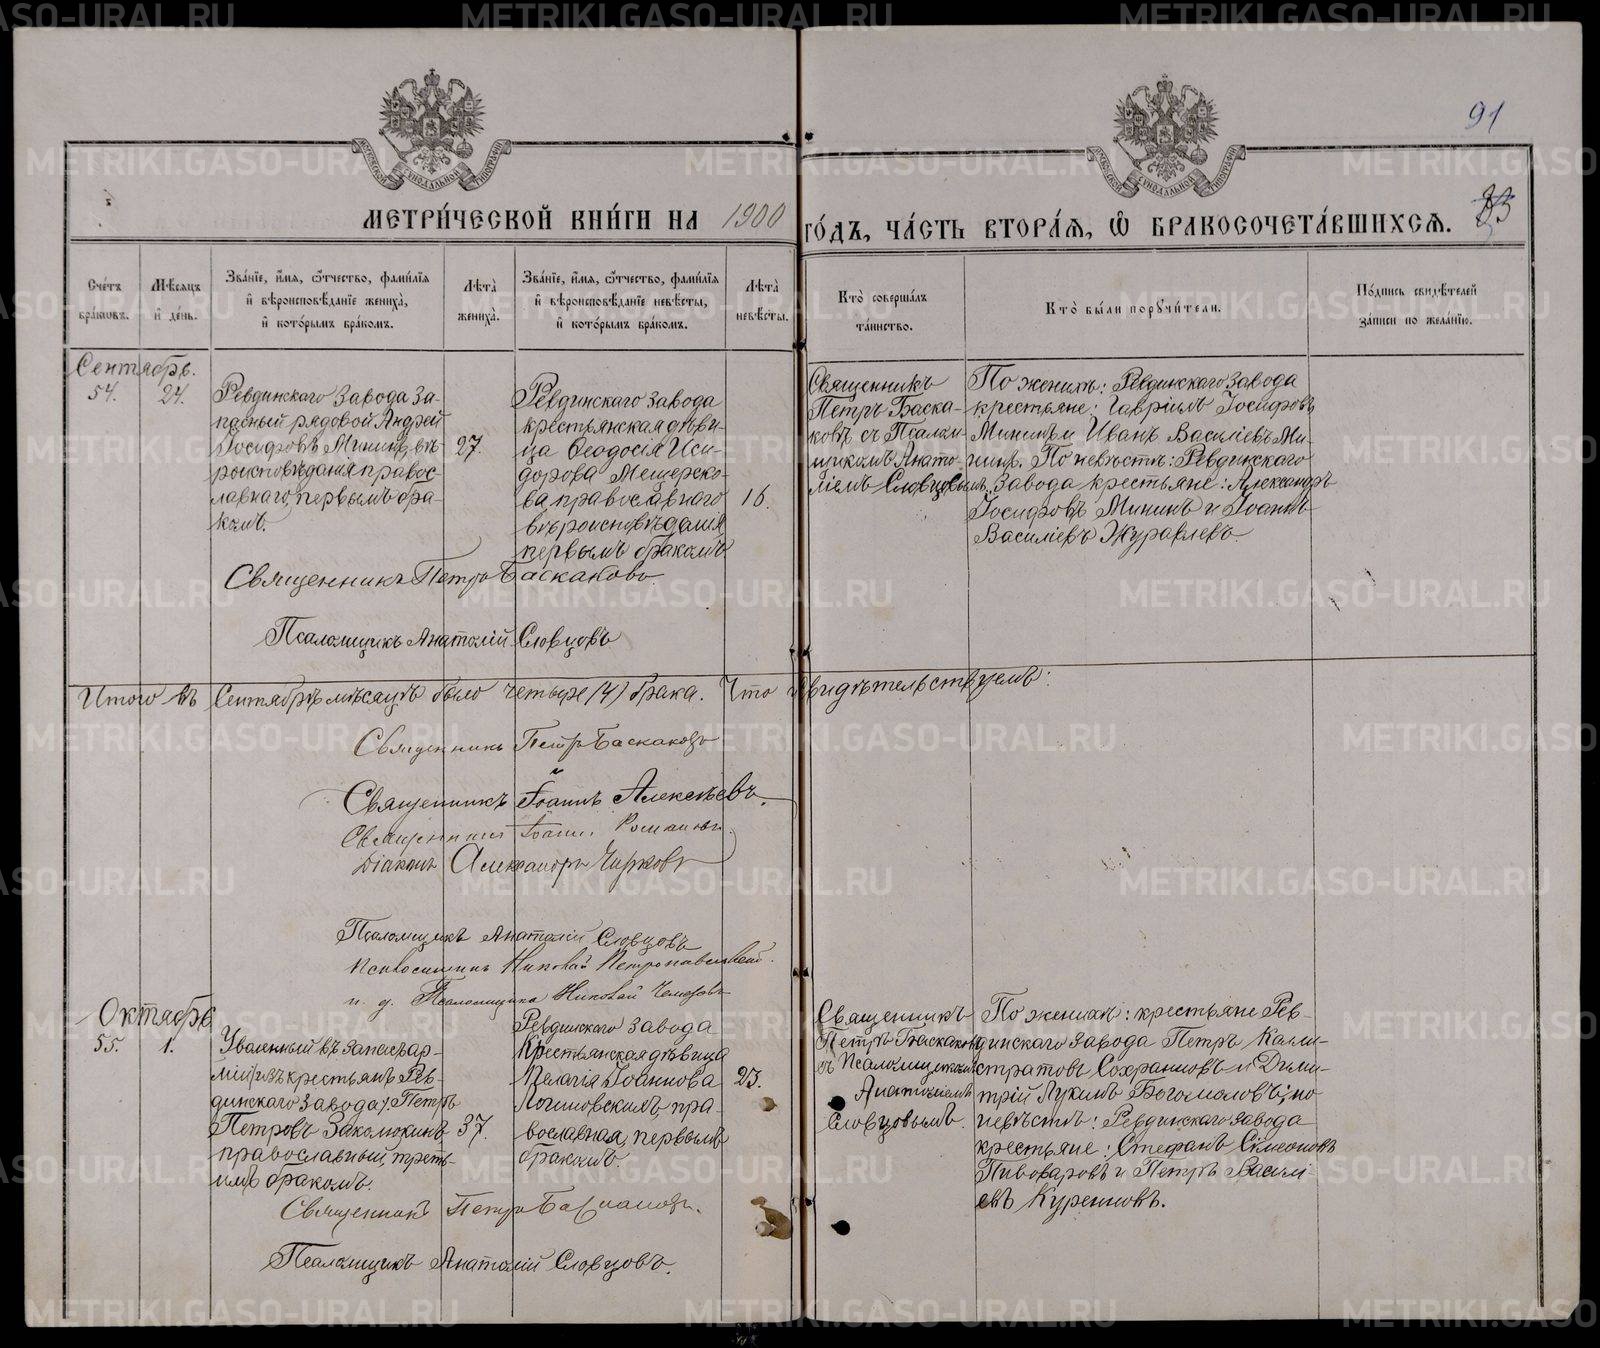 91
83
МЕТРИ́ЧЕСКОЙ КНИ́ГИ НА 1900 ГО́ДЪ, ЧА́СТЬ ВТОРА́Я, Ѿ БРАКОСОЧЕТА́ВШИХСЯ.
Сче́тъ бра́ковъ.
Мѣ́сяцъ и де́нь.
Зва́нїе, и́мя, ѻ́тчество, фами́лїя и вѣроисповѣ́данїе жениха̀, и кото́рымъ бра́комъ.
Лѣ́та̀ жениха̀.
Зва́нїе, и́мя, ѻ́тчество, фами́лїя и вѣроисповѣ́данїе невѣ́сты, и кото́рымъ бра́комъ.
Лѣ́та̀ невѣ́сты.
Кто̀ соверша́лъ та́инство.
Кто̀ бы́ли порꙋчи́тели.
По́дпись свидѣ́телей за́писи по жела́нїю.
Сентябрь.
54.
24.
Ревдинскаго Завода За-
пасный рядовой Андрей
Іосифовъ Мининъ, вѣ-
роисповѣданія правос-
лавнаго, первымъ бра-
комъ.
27.
Ревдинскаго завода
крестьянская дѣви-
ца Ѳеодосія Иси-
дорова Мещеряко-
ва, православнаго
вѣроисповѣданія,
первымъ бракомъ
16.
Священникъ
Петръ Баска-
ковъ съ Псалом-
щикомъ Анато-
ліемъ Словцовымъ.
По женихѣ: Ревдинскаго Завода
крестьяне: Гавріилъ Іосифовъ
Мининъ и Иванъ Василіевъ Ми-
нинъ. По невѣстѣ: Ревдинскаго
Завода крестьяне: Александръ
Іосифовъ Мининъ и Іоаннъ
Василіевъ Журавлевъ.
Священникъ Петръ Баскаковъ.
Псаломщикъ Анатолій Словцовъ
Итого въ Сентябрѣ мѣсяцѣ было четыре (4) брака. Что свидѣтельствуемъ:
Священникъ Петръ Баскаковъ
Священникъ Іоаннъ Алексѣевъ.
Священникъ Іоаннъ Романовъ.
Діаконъ Александръ Чирковъ
Псаломщикъ Анатолій Словцовъ
Псаломщикъ Николай Петропавловскій.
и. д. Псаломщика Николай
Октябрь
55.
1.
Уволенный въ запасъ ар-
міи (изъ крестьянъ Рев-
динскаго Завода). Петръ
Петровъ Заколюкинъ
православный, треть-
имъ бракомъ.
37.
Ревдинскаго завода
Крестьянская дѣвица
Пелагія Іоаннова
Логиновскихъ, пра-
вославная, первымъ
бракомъ.
23.
Священникъ
Петръ Баскаковъ
съ Псаломщикомъ
Анатоліемъ
Словцовымъ.
По женихѣ: крестьяне Рев-
динскаго завода Петръ Калли-
стратовъ Сохрановъ и Дими-
трій Лукинъ Богомоловъ; по
невѣстѣ: Ревдинскаго завода
крестьяне: Стефанъ Симеоновъ
Пивоваровъ и Петръ Василі-
евъ Куренновъ.
Священникъ Петръ Баскаковъ.
Псаломщикъ Анатолій Словцовъ.
METRIKI.GASO-URAL.RU